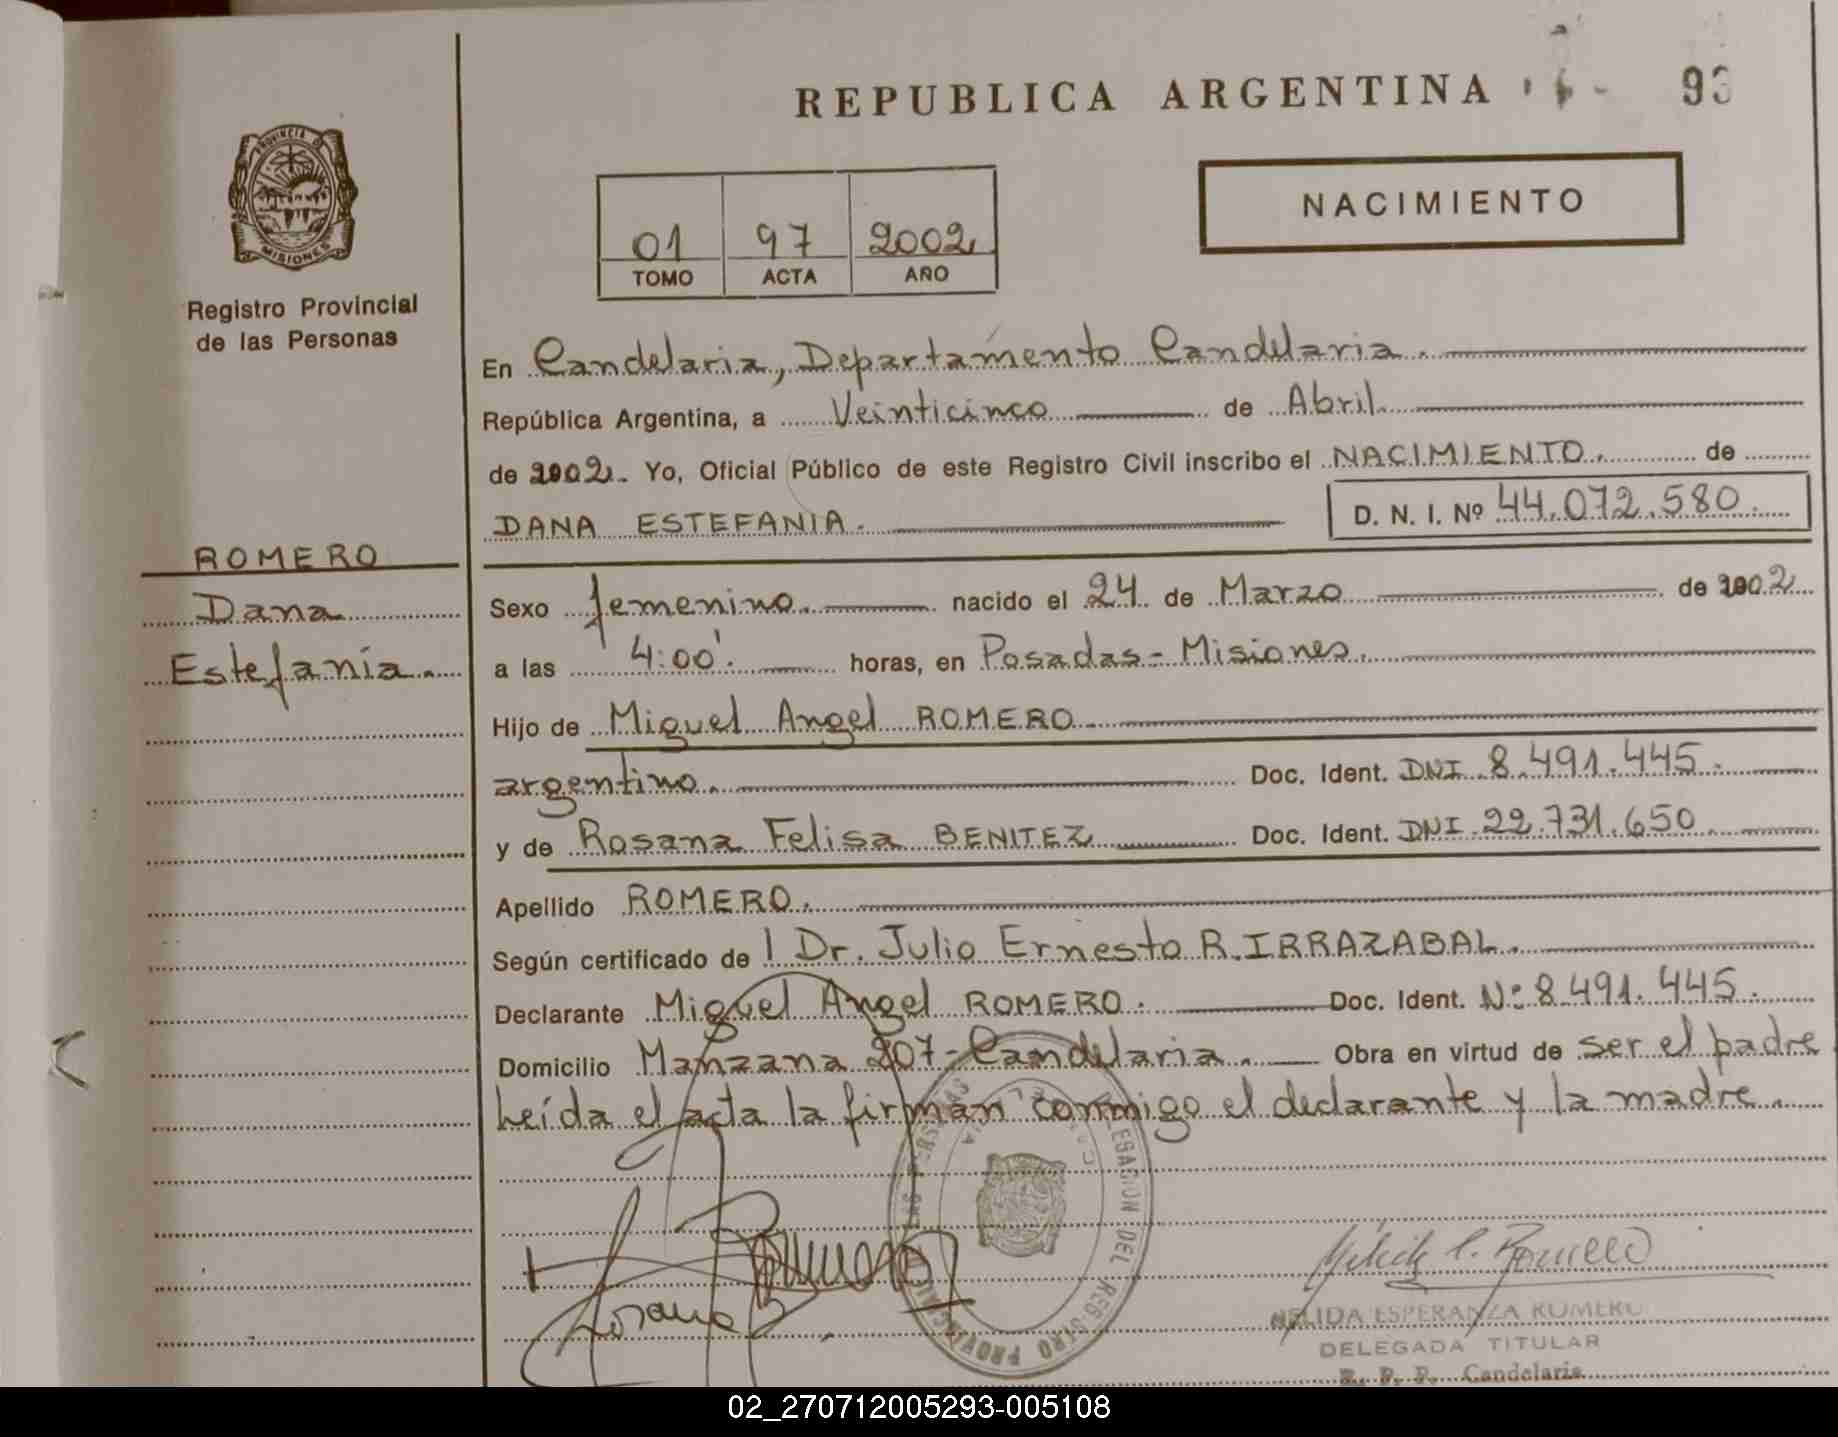 REPUBLICA ARGENTINA
93
PROVINCIA D
MISIONES
Registro Provincial
de las Personas
NACIMIENTO
01 97 2002
TOMO ACTA AÑO
En Candelaria, Departamento Candelaria.
República Argentina, a Veinticinco de Abril.
de 2002. Yo, Oficial Público de este Registro Civil inscribo el NACIMIENTO. de
DANA ESTEFANIA. D. N. I. Nº 44.072.580.
ROMERO
Dana
Estefanía.
Sexo femenino. nacido el 24 de Marzo de 2002
a las 4:00'. horas, en Posadas - Misiones.
Hijo de Miguel Angel ROMERO.
argentino. Doc. Ident. DNI 8.491.445.
y de Rosana Felisa BENITEZ Doc. Ident. DNI 22.731.650
Apellido ROMERO.
Según certificado de l Dr. Julio Ernesto R. IRRAZABAL.
Declarante Miguel Angel ROMERO. Doc. Ident. Nº 8.491.445.
Domicilio Manzana 207 - Candelaria. Obra en virtud de ser el padre.
Leída el acta la firman conmigo el declarante y la madre.
DELEGACION DEL REGISTRO PROVINCIAL DE LAS PERSONAS
Romero
Rosana B
NELIDA ESPERANZA ROMERO
DELEGADA TITULAR
R. P. P. Candelaria
02_270712005293-005108